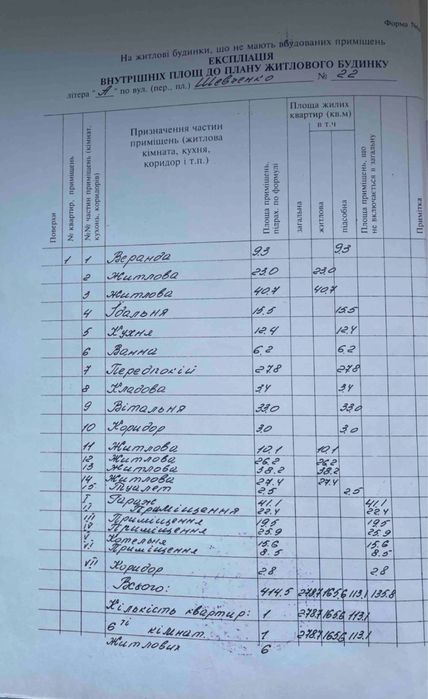 Форма №
На житлові будинки, що не мають вбудованих приміщень
ЕКСПЛІАЦІЯ
ВНУТРІШНІХ ПЛОЩ ДО ПЛАНУ ЖИТЛОВОГО БУДИНКУ
літера "А" по вул. (пер., пл.) Шевченко № 22
Поверхи
№ квартир, приміщень
№№ частин приміщень (кімнат, кухонь, коридорів)
Призначення частин приміщень (житлова кімната, кухня, коридор і т.п.)
Площа приміщень, підрах. по формулі
Площа жилих квартир (кв.м) в т.ч
загальна
житлова
підсобна
Площа приміщень, що не включається в загальну
Примітка
1 1 Веранда 9.3 9.3
2 Житлова 23.0 23.0
3 Житлова 40.7 40.7
4 Їдальня 15.5 15.5
5 Кухня 12.4 12.4
6 Ванна 6.2 6.2
7 Передпокій 27.8 27.8
8 Кладова 3.4 3.4
9 Вітальня 33.0 33.0
10 Коридор 3.0 3.0
11 Житлова 10.1 10.1
12 Житлова 26.2 26.2
13 Житлова 38.2 38.2
14 Житлова 27.4 27.4
15 Туалет 2.5 2.5
I Гараж 41.1 41.1
II Приміщення 22.4 22.4
III Приміщення 19.5 19.5
IV Приміщення 25.9 25.9
V Котельня 15.6 15.6
VI Приміщення 8.5 8.5
VII Коридор 2.8 2.8
Всього: 414.5 278.7 165.6 113.1 135.8
Кількість квартир: 1 278.7 165.6 113.1
6ті кімнат 1 278.7 165.6 113.1
Житлових 6